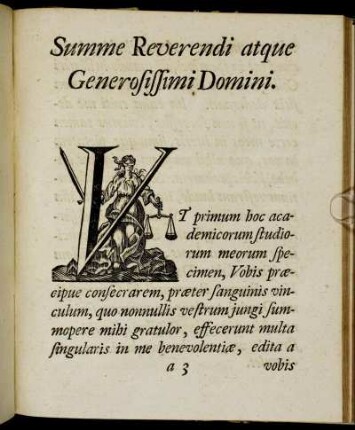 Summe Reverendi atque
Generoſiſſimi Domini.
VT primum hoc aca-
demicorum ſtudio-
rum meorum ſpe-
cimen, Vobis præ-
cipue conſecrarem, præter ſanguinis vin-
culum, quo nonnullis veſtrum jungi ſum-
mopere mihi gratulor, effecerunt multa
ſingularis in me benevolentiæ, edita a
a 3 vobis